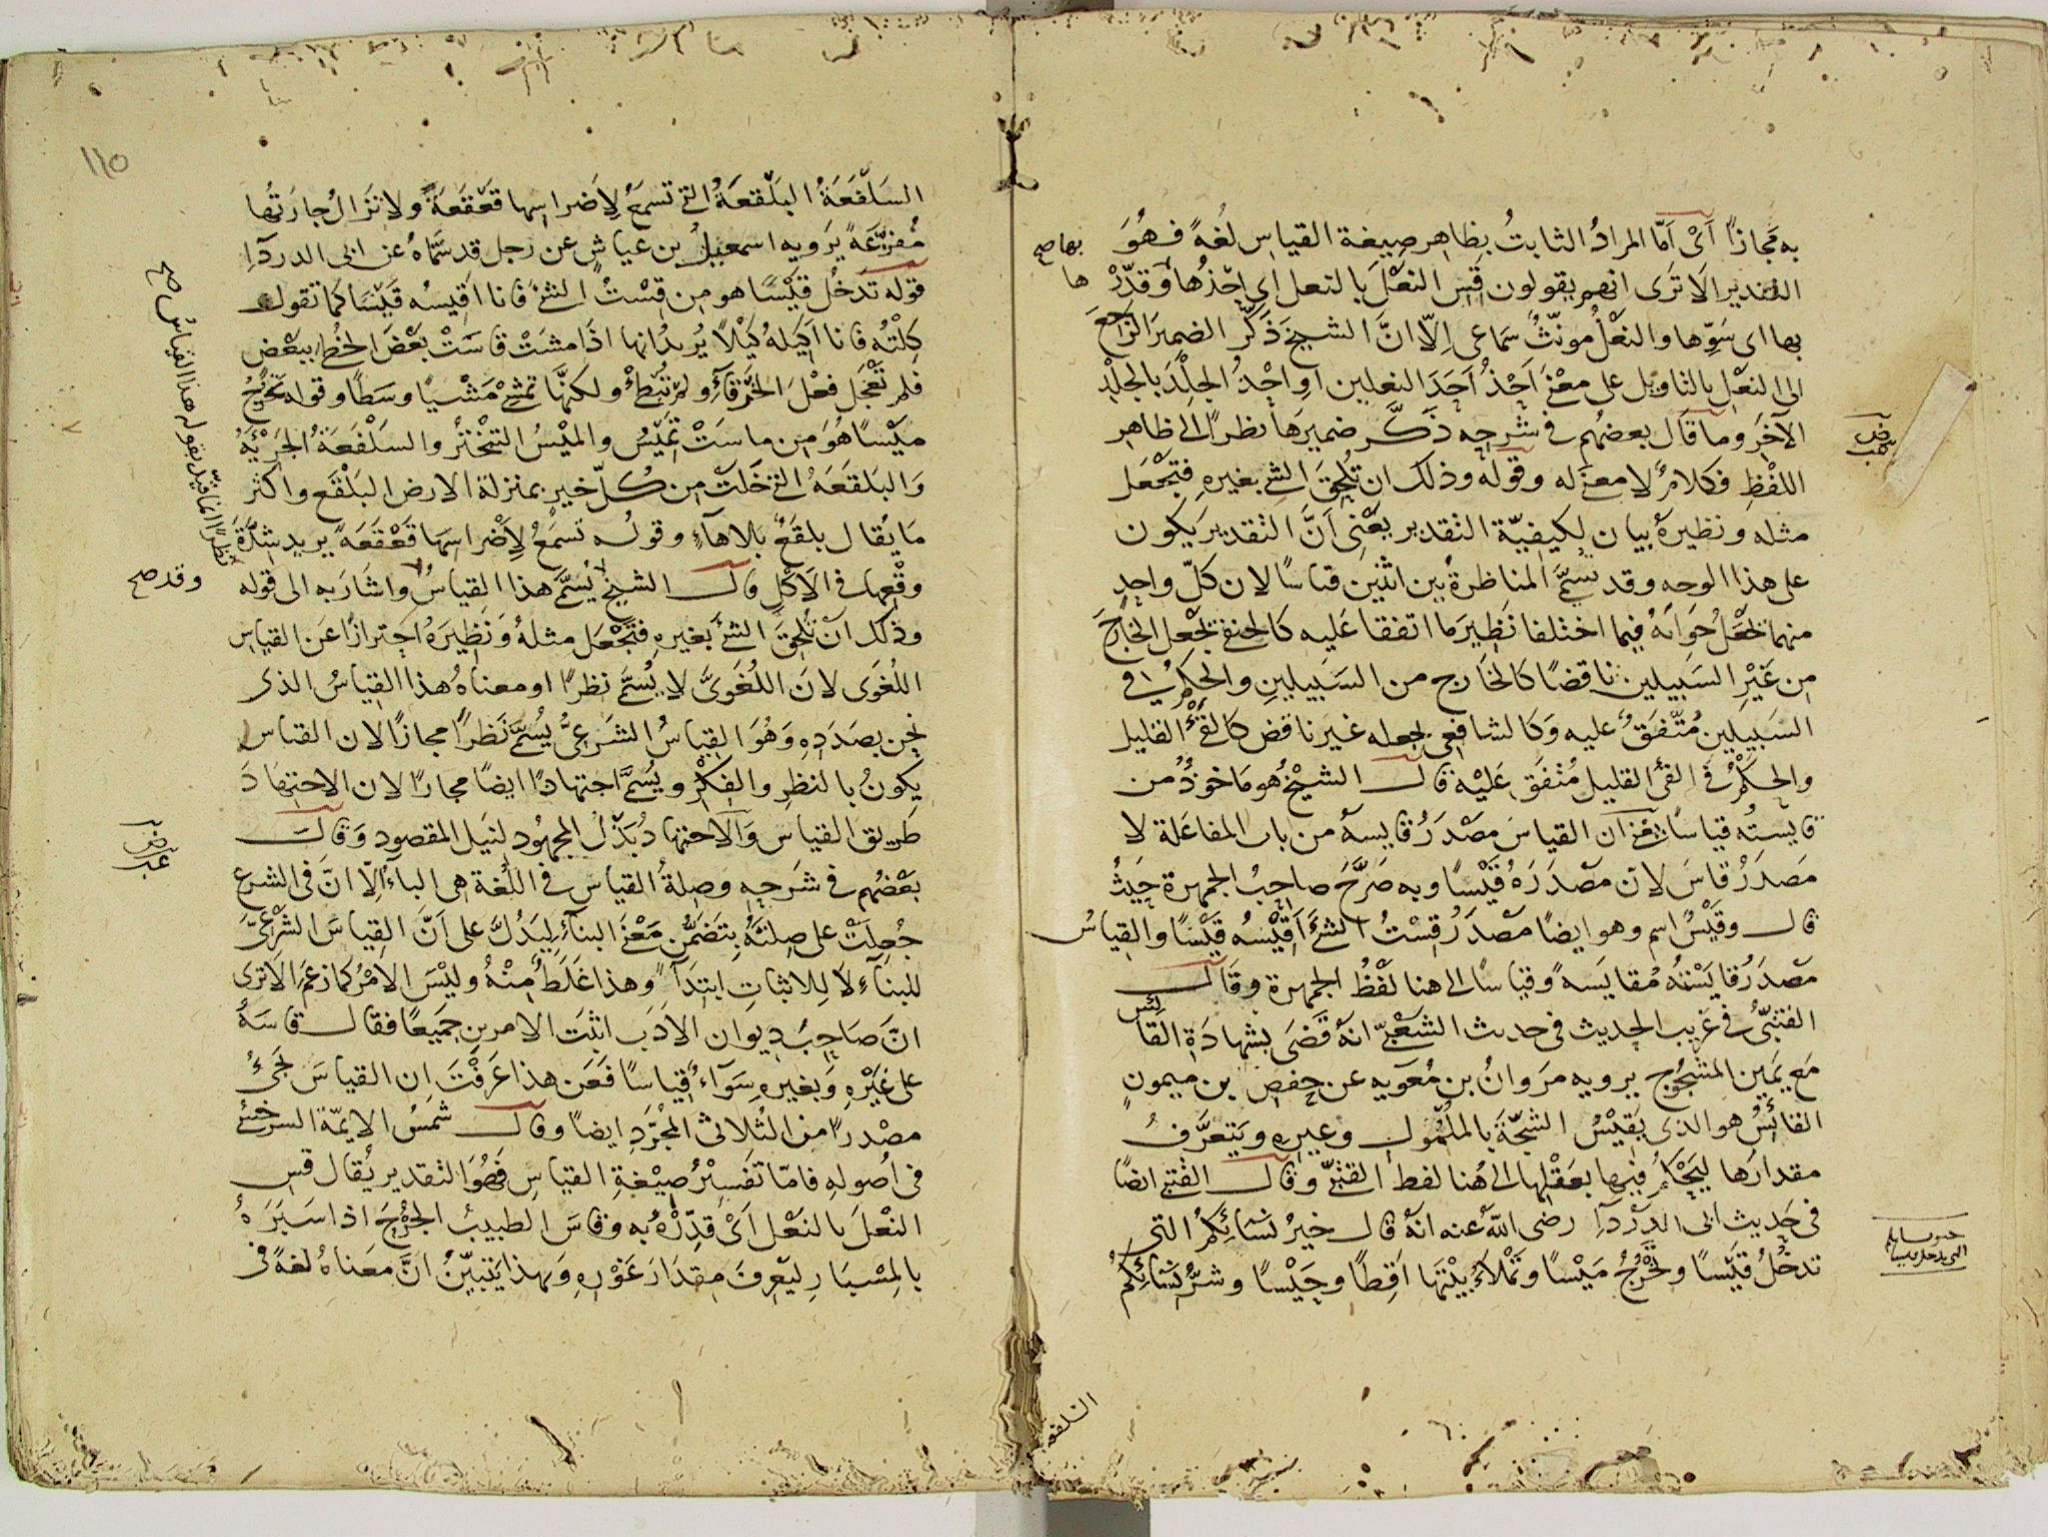 به مجازا اى اما المراد الثابت بظاهر صيغة القياس لغة فهو
بها صح
التقدير الا ترى انهم يقولون قس النعل بالنعل اى احذها وقدرْ ها
بها اى سوّها والنعل مونث سماعى الا ان الشيخ ذكّر الضمير الراجع
الى النعل بالتاويل على معنى احذ احد النعلين او احذ الجلد بالجلد
الآخر وما قال بعضهم فى شرحه ذكّر ضميرها نظرا الى ظاهر
اللفظ فكلام لا معنى له وقوله وذلك ان تلحق الشى بغيره فتجعل
مثله ونظيره بيان لكيفيّة التقدير يعنى ان التقدير يكون
على هذا الوجه وقد تسمى المناظرة بين اثنين قياسا لان كل واحد
منهما يجعل جوابه فيما اختلفا نظير ما اتفقا عليه كالحنفى يجعل الخارج
من غير السبيلين ناقضا كالخارج من السبيلين والحكم فى
السبيلين متفق عليه وكالشافعى يجعله غير ناقض كالقئ القليل
والحكم فى القئ القليل متفق عليه قال الشيخ هو ماخوذ من
قايسته قياسا يعنى ان القياس مصدر قايسه من باب المفاعلة لا
مصدر قاس لان مصدره قيسا وبه صرّح صاحب الجمهرة حيث
قال وقيس اسم وهو ايضا مصدر قست الشئ اقيسه قيسا والقياس
مصدر قايسته مقايسة وقياسا الى هنا لفظ الجمهرة وقال
القتبىّ فى غريب الحديث فى حديث الشعبىّ انه قضى بشهادة القائس
مع يمين المشجوج يرويه مروان بن معويه عن حفص بن ميمون
القائس هو الذى يقيس الشجّة بالملمول وغيره ويتعرّف
مقدارها ليحكم فيها بعقلها الى هنا لفظ القتبىّ وقال القتبى ايضا
فى حديث ابى الدردآ رضى الله عنه انه قال خير نسائكم التى
تدخل قيسا وتخرج ميسا وتملأ بيتها اقطا وحيسا وشرّ نسائكم
السلفعة
١١٥
السلفعة البلقعة التى تسمع لاضراسها قعقعة ولا تزال جارتها
مفزّعة يرويه اسمعيل بن عياش عن رجل قد سمّاه عن ابى الدردآ
قوله تدخل قيسا هو من قست الشئ فانا اقيسه قيسا كما تقول
كلته فانا اكيله كيلا يريد انها اذا مشت قاست بعض الخطا ببعض
فلم تعجل فعل الخرقآء ولم تبطئ ولكنها تمشى مشيا وسطا وقوله تخرج
ميسا هو من ماست تميس والميس التبختر والسلفعة الجريّة
والبلقعة التى خلت من كل خير بمنزلة الارض البلقع واكثر
ما يقال بلقع بلا هآء وقوله تسمع لاضراسها قعقعة يريد شدّة
وقعها فى الاكل قال الشيخ يسمّى هذا القياس واشار به الى قوله
وقد صح
نظرا انما قيّد بقوله هذا القياس صح
وذلك ان تلحق الشئ بغيره فتجعل مثله ونظيره احترازا عن القياس
اللغوى لان اللغوىّ لا يسمّى نظرا او معناه هذا القياس الذى
نحن بصدده وهو القياس الشرعىّ يسمّى نظرا مجازا لان القياس
يكون بالنظر والفكر ويسمّى اجتهادا ايضا مجازا لان الاجتهاد
طريق القياس والاجتهاد بذل المجهود لنيل المقصود وقال
بعضهم فى شرحه وصلة القياس فى اللغة هى الباء الا انّ فى الشرع
جعلت على صلته بتضمّن معنى البنآء ليدلّ على انّ القياس الشرعىّ
للبنآء لا للاثبات ابتدآء وهذا غلط منه وليس الامر كما زعم الا ترى
انّ صاحب ديوان الادب اثبت الامرين جميعا فقال قاسه
على غيره وبغيره سوآء قياسا فعن هذا عرفت ان القياس يجئ
مصدرا من الثلاثى المجرّد ايضا وقال شمس الايمّة السرخسى
فى اصوله فامّا تفسير صيغة القياس فهو التقدير يقال قس
النعل بالنعل اى قدّره به وقاس الطبيب الجرح اذا سبره
بالمسبار ليعرف مقدار غوره وبهذا يتبيّن انّ معناه لغة فى